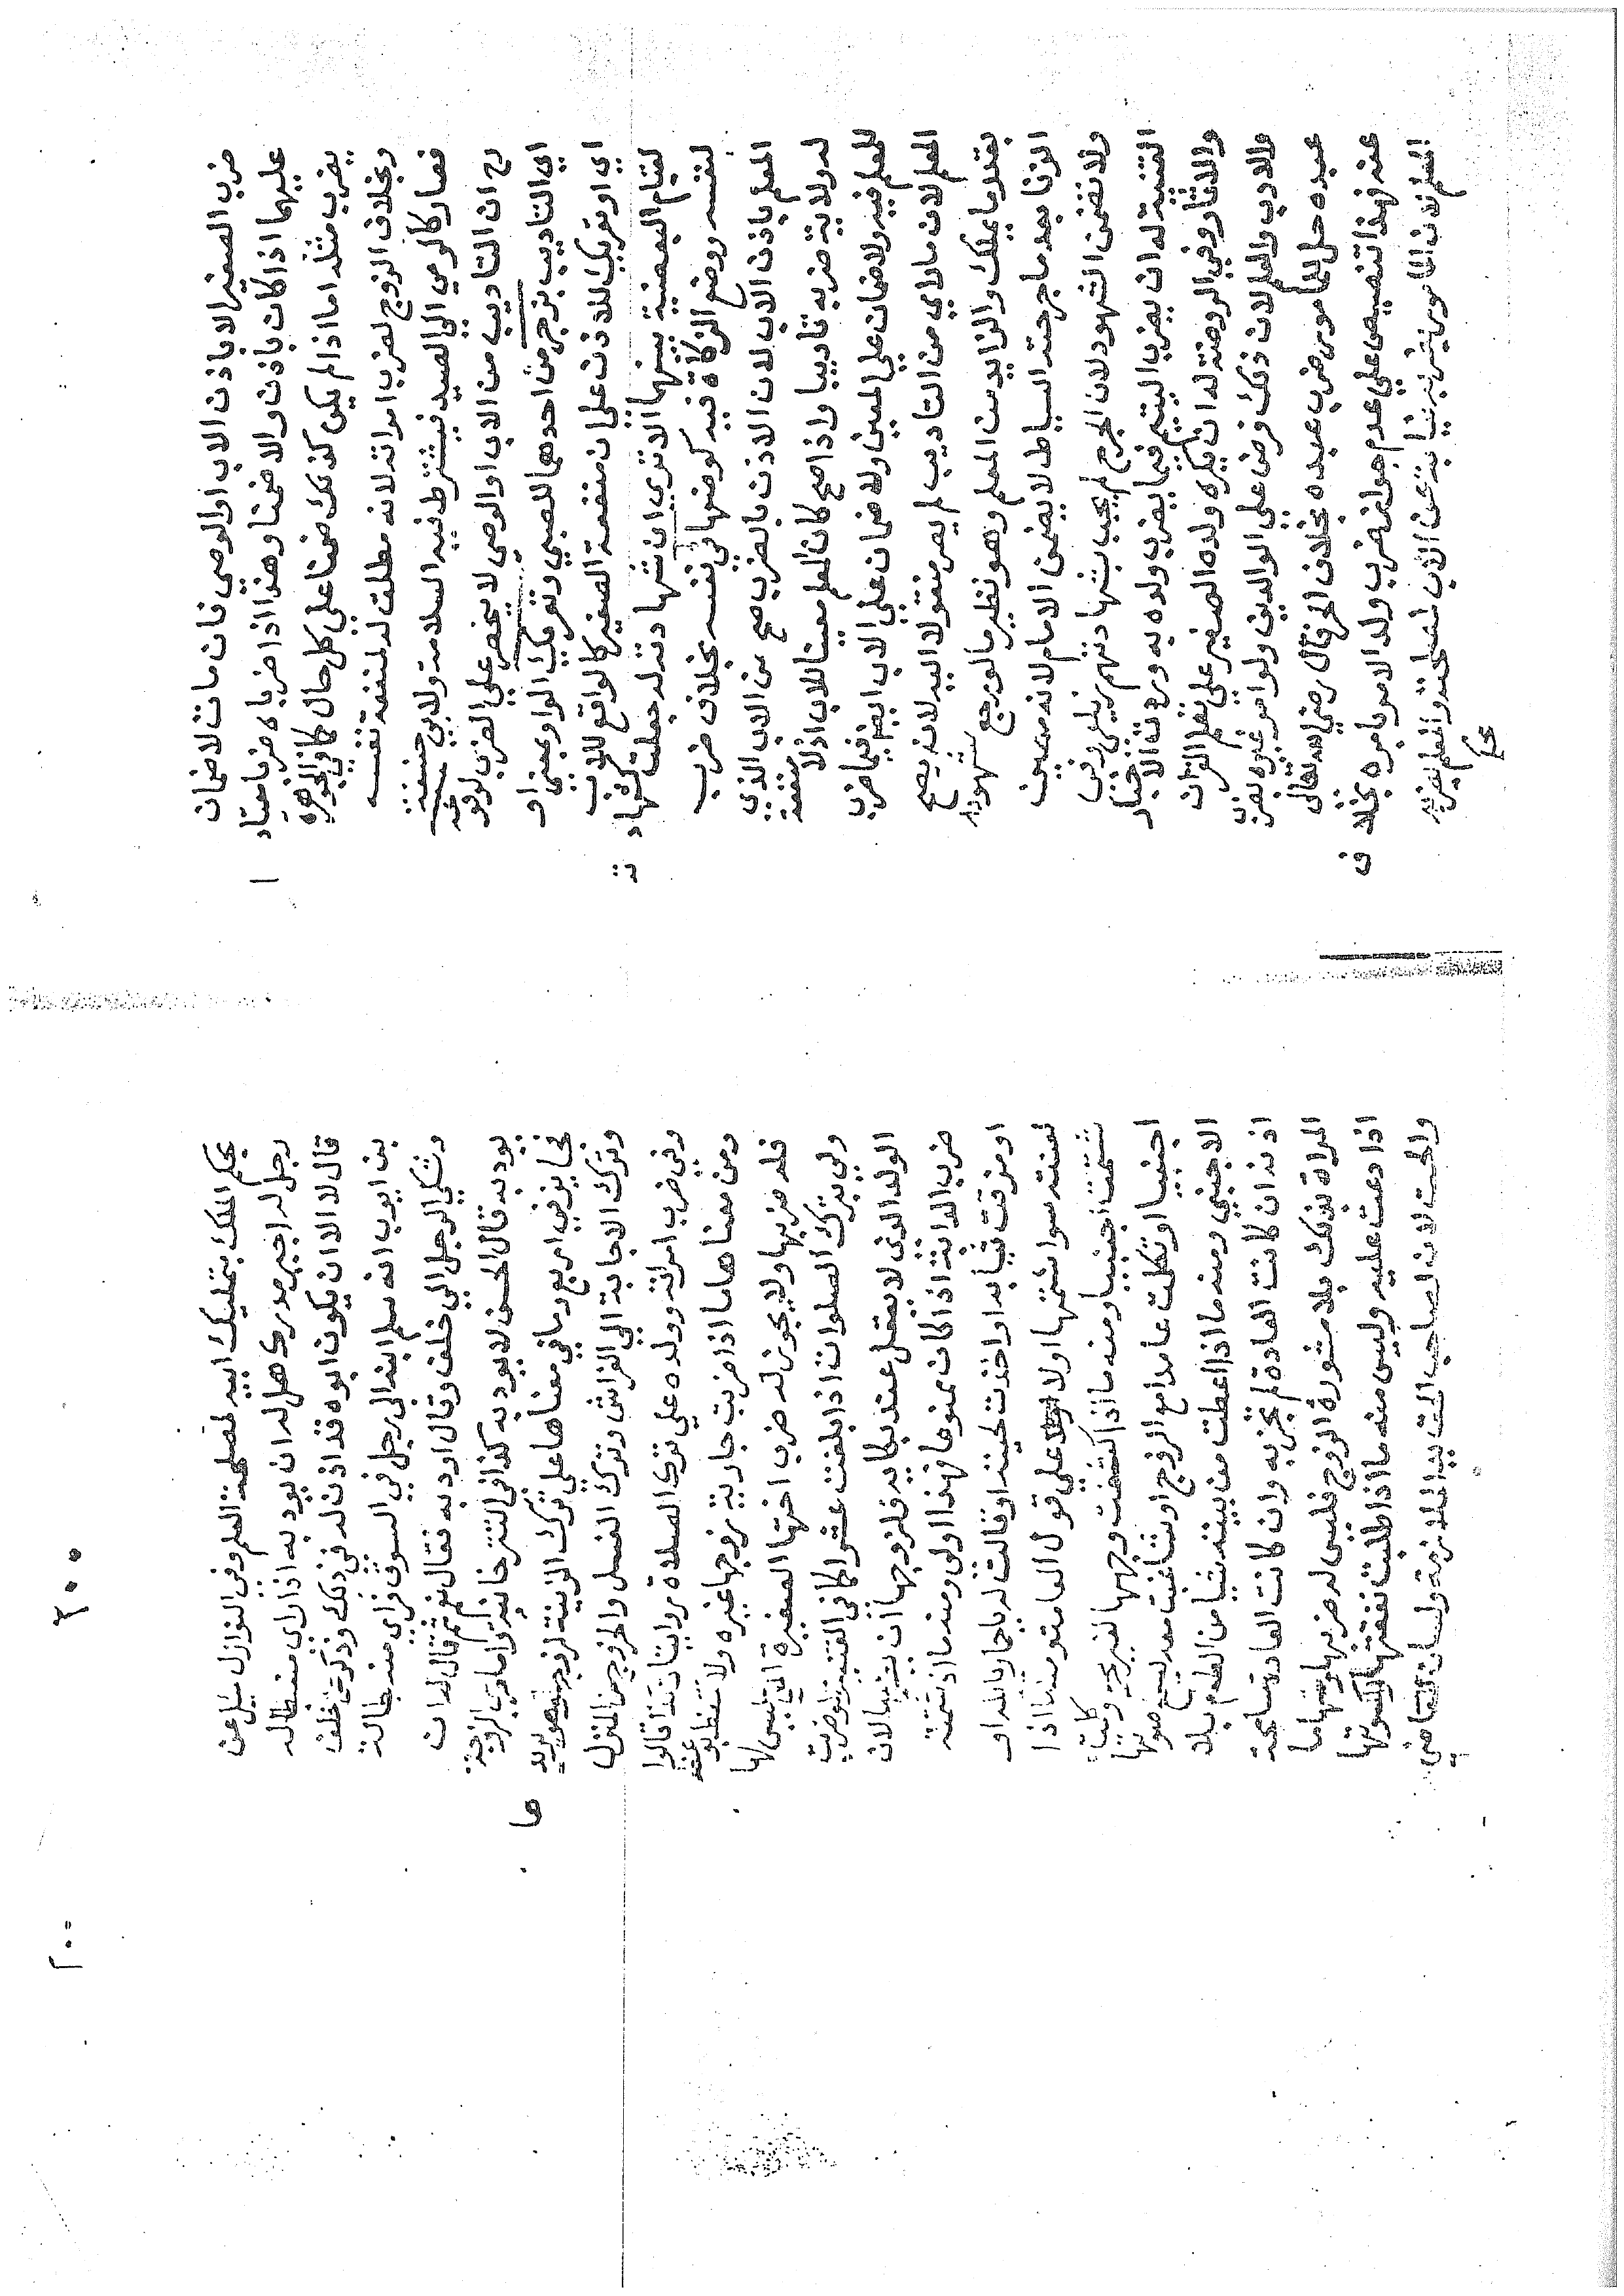 ضرب الصغير الا باذن الاب او الوصي فان مات لا ضمان
عليهما اذا كان باذن والا ضمنا وهذا اذا ضرباه ضربا معتادا
يضرب مثله اما اذا لم يكن كذلك ضمنا علي كل حال كما في الجوهره
وبخلاف الزوج لضرب امراته لانه مطلق له لمنفعة نفسه
فصار كالرمي الي الصيد فيشترط فيه السلامة ولابي حنيفة
رح ان التاديب من الاب او الوصي لا ينحصر علي الضرب لوقوعه
اي التاديب بزجر من احدهما للصبي وتعريك الواو بمعني او
اي او تعريك للاذن علي ان منفعة الصغير كالواقع للاب
لقيام البعضية بينهما الا تري ان شهادته له جعلت كشهادته
لنفسه ووضع الزكاة فيه كوضعها في نفسه بخلاف ضرب
المعلم باذن الاب لان الاذن بالضرب صح من الاب الذي
له ولاية ضربه تاديبا واذا صح كان المعلم معينا للاب اذ لا منفعة
للمعلم فيه ولا ضمان علي المعين ولا ضمان علي الاب ايضا فيما ضرب
المعلم لان ما لابي من التاديب لم يصر منقولا اليه لانه يصح
بقدر ما يملك والزايد من المعلم وهو نظير ما لو رجع شهود
الزنا بعد ما جرحته السياط لا يضمن الامام لانه معين
ولا تضمن الشهود لان الجرح لم يجب بشهادتهم زيلعي وفي
القنية له ان يضرب اليتيم فيما يضرب ولده به وردت الاخبار
والاثار وفي الروضة له ان يكره ولده الصغير علي تعلم القران
والادب والعلم لان ذلك فرض علي الوالدين ولو امر غيره بضرب
عبده حل للمامور ضرب عبده بخلاف الحر قال رضي الله تعالي
عنه فهذا تنصيص علي عدم جواز ضرب ولد الامر بامره بخلاف
المعلم لان المامور يضربه نيابة عن الاب لمصلحته والمعلم يضربه
يحكم
يحكم الملك بتمليك ابيه لمصلحة العلم وفي النوازل سيل عن
رجل له اجير مدرك هل له ان يودبه اذا راي منه بطالة
قال لا الا ان يكون ابوه قد اذن له في ذلك وذكر عن خلف
بن ايوب انه سلم ابنه الى رجل في السوق فراي منه بطالة
وشكي الرجل الي خلف وقال اودبه فقال نعم ثم قال له ان
يودبه قال الحسن لا يودبه كذا في التترخانية واما ضرب الزوجة
فجايز في اربع وما في معناها علي ترك الزينة لزوجها وهو يريدها
وترك الاجابة الي الفراش وترك الغسل والخروج من المنزل
وفي ضرب امراته وولده علي ترك الصلاة روايتان كذا قالوا
ومن معناها ما اذا ضربت جارية زوجها غيره ولا تتعظ بوعظه
فله ضربها ولا يجوز له ضرب اختها الصغيرة التي ليس لها
ولي بترك الصلوات اذا بلغت عشرا كما في القنية ولو ضربت
الولد الذي لا يعقل عند بكايه فلزوجها ان يضربها لان
ضرب الدابة اذا كان ممنوعا فهذا اولى ومنه ما اذا شتمته
او مزقت ثيابه او اخذت لحيته او قالت له يا حمار يا بليد او
لعنته سوا شتمها اولا علي قول العامة ومنه ما اذا
شتمت اجنبيا ومنه ما اذا كشفت وجهها لغير محرم وكلمت
اجنبيا او تكلمت عامدا مع الزوج او شاغبت معه ليسمع صوتها
الاجنبي ومنه ما اذا اعطت من بيته شيا من الطعام بلا
اذنه ان كانت العادة لم تجر به وان كانت العادة مسامحة
المراة بذلك بلا مشورة الزوج فليس له ضربها ومنها ما
اذا دعت عليه وليس منه ما اذا طلبت نفقتها او كسوتها
والحت لان لصاحب الحق يد الملازمة ولسان التقاضي
٢٠٠
٢٠٠